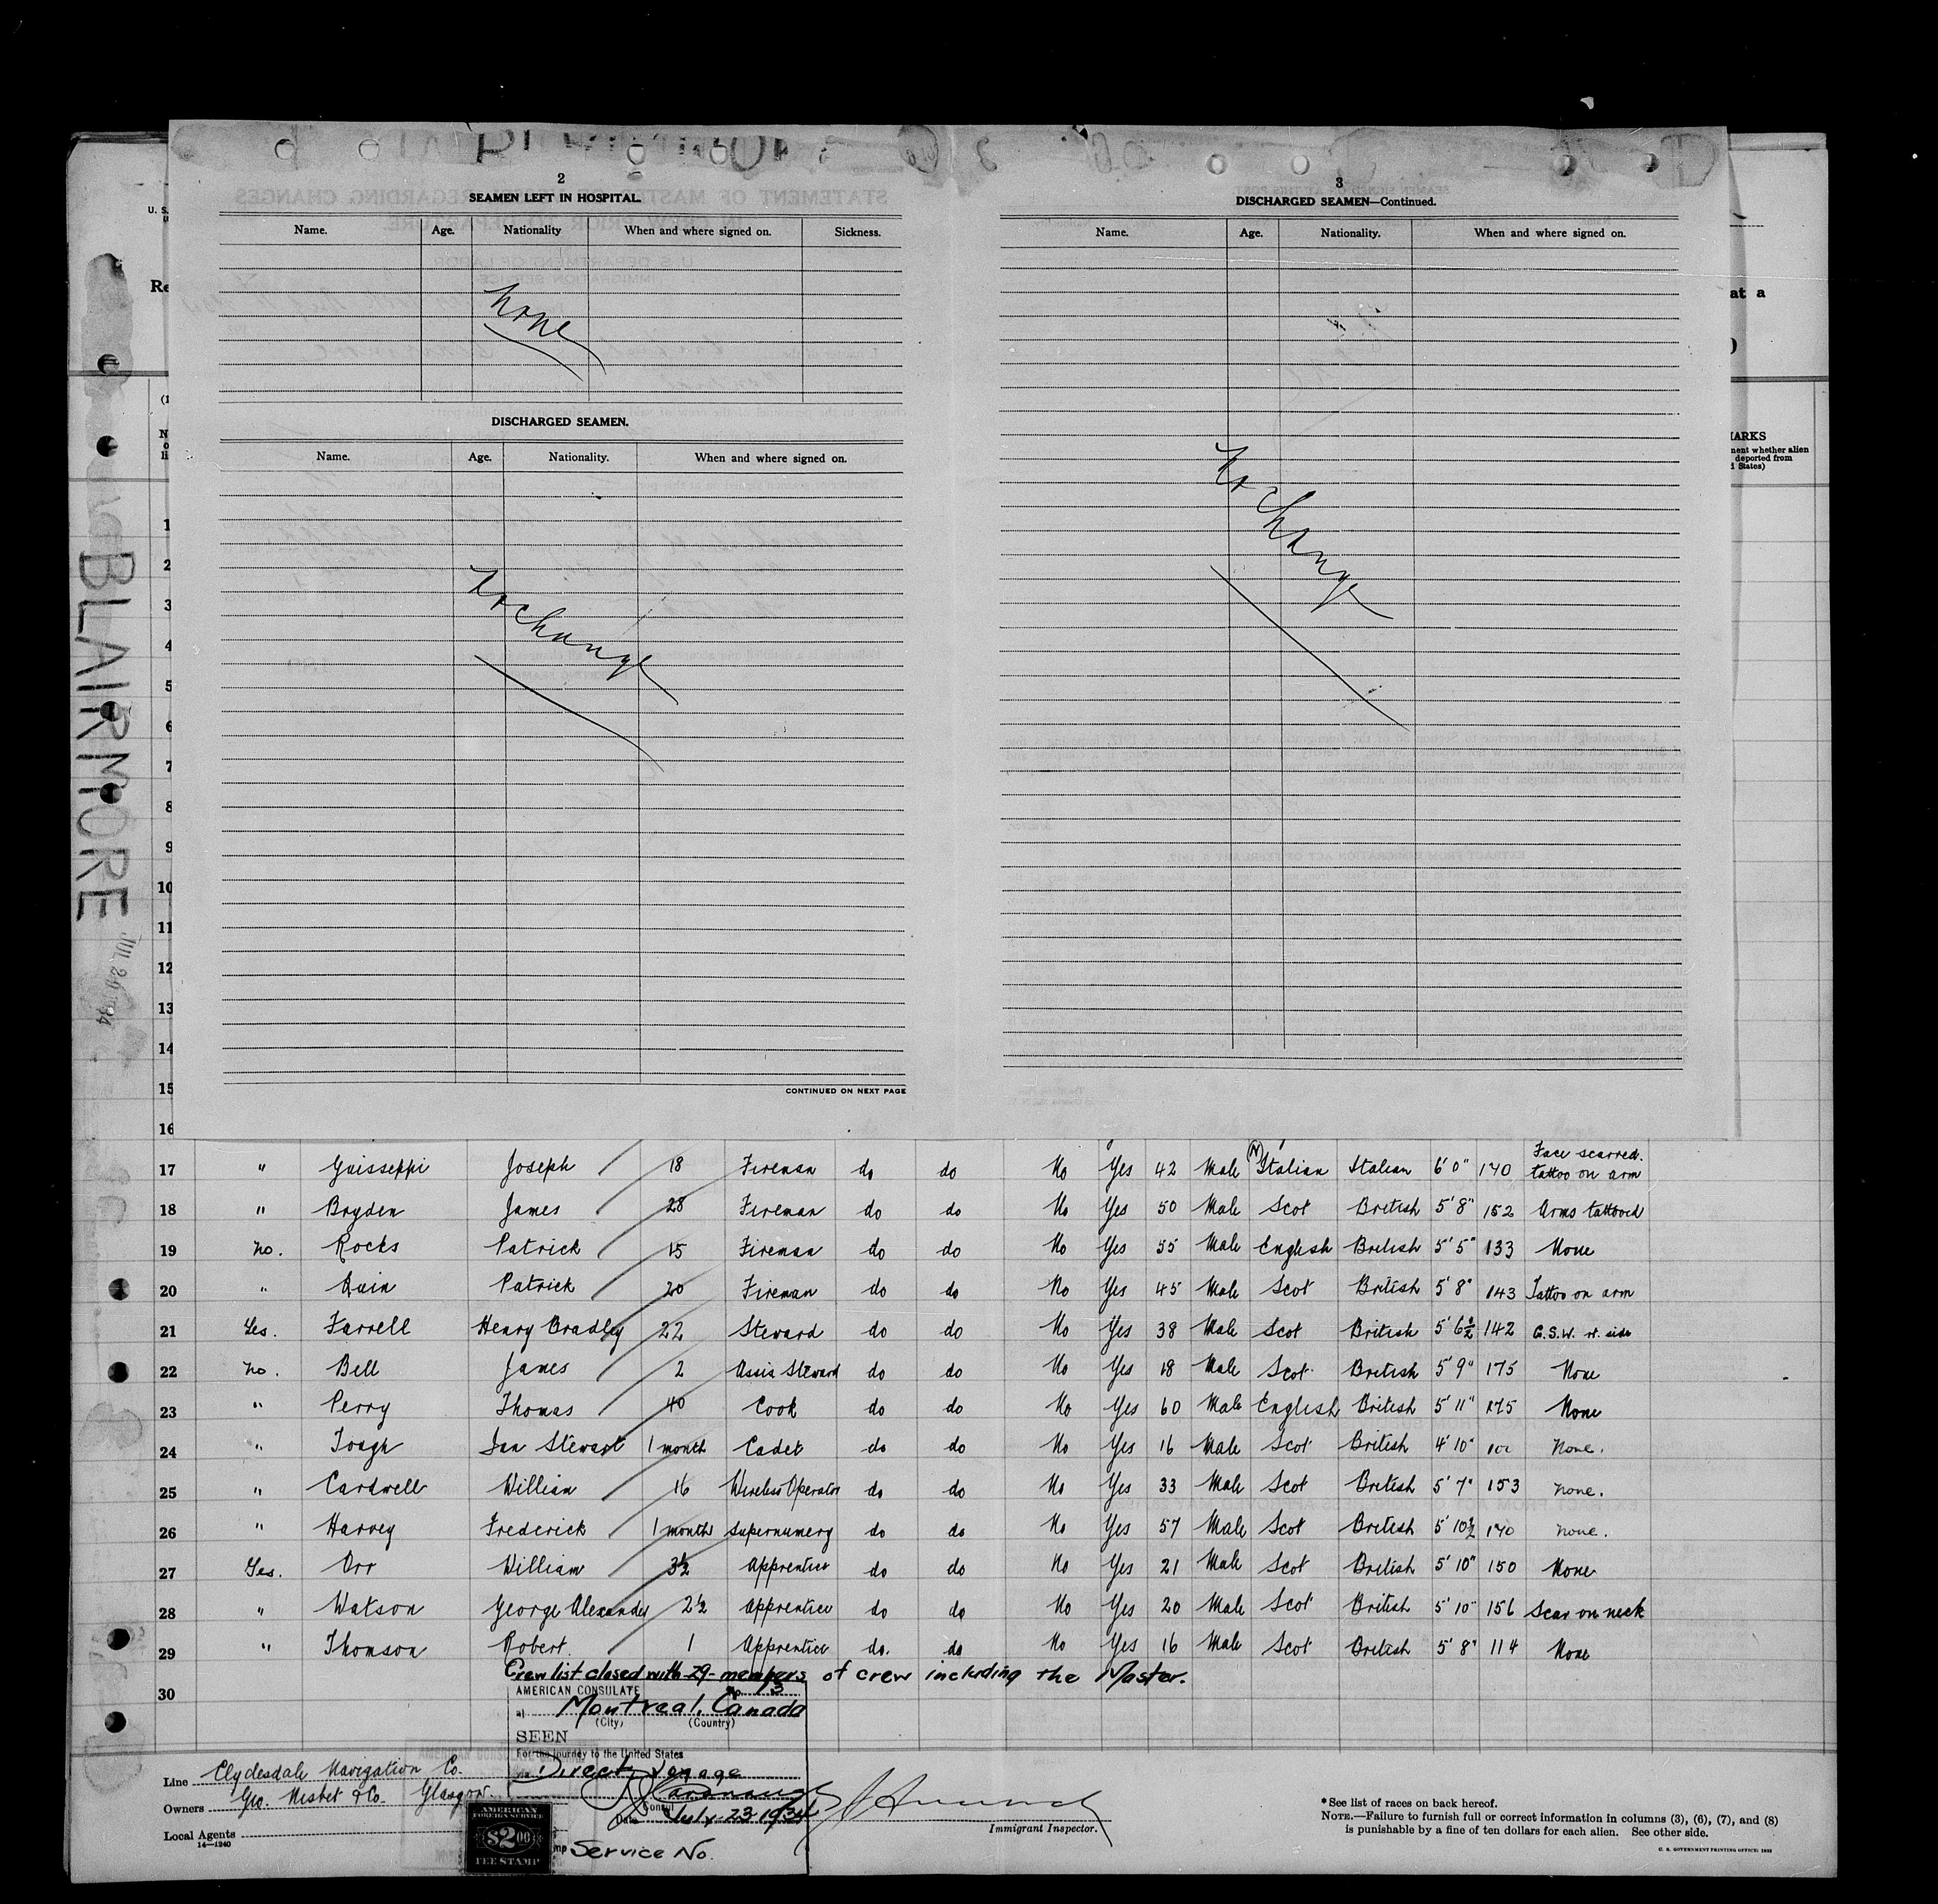 2
SEAMEN LEFT IN HOSPITAL.
Name. Age. Nationality When and where signed on. Sickness.
None
DISCHARGED SEAMEN.
Name. Age. Nationality. When and where signed on.
No change
CONTINUED ON NEXT PAGE
3
DISCHARGED SEAMEN—Continued.
Name. Age. Nationality. When and where signed on.
No change
U. S.
Re
at a
ARKS
ment whether alien
deported from
States)
BLAIRMORE
1
2
3
4
5
6
7
8
9
10
11
12
13
14
15
16
17 " Guisseppi Joseph 18 Fireman do do No Yes 42 Male Italian Italian 6' 0" 170 Face scarred. tattoo on arm
18 " Bryden James 28 Fireman do do No Yes 50 Male Scot British 5' 8" 152 Arms tattooed
19 No. Rocks Patrick 15 Fireman do do No Yes 55 Male English British 5' 5" 133 None
20 " Quin Patrick 20 Fireman do do No Yes 45 Male Scot British 5' 8" 143 Tattoo on arm
21 Yes. Farrell Henry Bradley 22 Steward do do No Yes 38 Male Scot British 5' 6½ 142 G.S.W. rt. side
22 No. Bell James 2 Assis Steward do do No Yes 18 Male Scot British 5' 9" 175 None
23 " Perry Thomas 40 Cook do do No Yes 60 Male English British 5' 11" 175 None
24 " Tough Ian Stewart 1 month Cadet do do No Yes 16 Male Scot British 4' 10" None.
25 " Cardwell William 16 Wireless Operator do do No Yes 33 Male Scot British 5' 7" 153 None.
26 " Harvey Frederick 1 month Supernumery do do No Yes 57 Male Scot British 5' 10½ 170 None.
27 Yes. Orr William 3½ Apprentice do do No Yes 21 Male Scot British 5' 10" 150 None
28 " Watson George Alexander 2½ Apprentice do do No Yes 20 Male Scot British 5' 10" 156 Scar on neck
29 " Thomson Robert 1 Apprentice do. do No Yes 16 Male Scot British 5' 8" 114 None
Crew list closed with 29 members of crew including the Master.
30
AMERICAN CONSULATE
at Montreal, Canada
(City) (Country)
SEEN
For the journey to the United States
via Direct voyage
Consul
Date July 23 1934
Service No.
AMERICAN
FOREIGN SERVICE
$2.00
FEE STAMP
Line Clydesdale Navigation Co.
Owners Geo. Nisbet & Co. Glasgow.
Local Agents
14—1240
Immigrant Inspector.
* See list of races on back hereof.
NOTE.—Failure to furnish full or correct information in columns (3), (6), (7), and (8)
is punishable by a fine of ten dollars for each alien. See other side.
U. S. GOVERNMENT PRINTING OFFICE: 1932